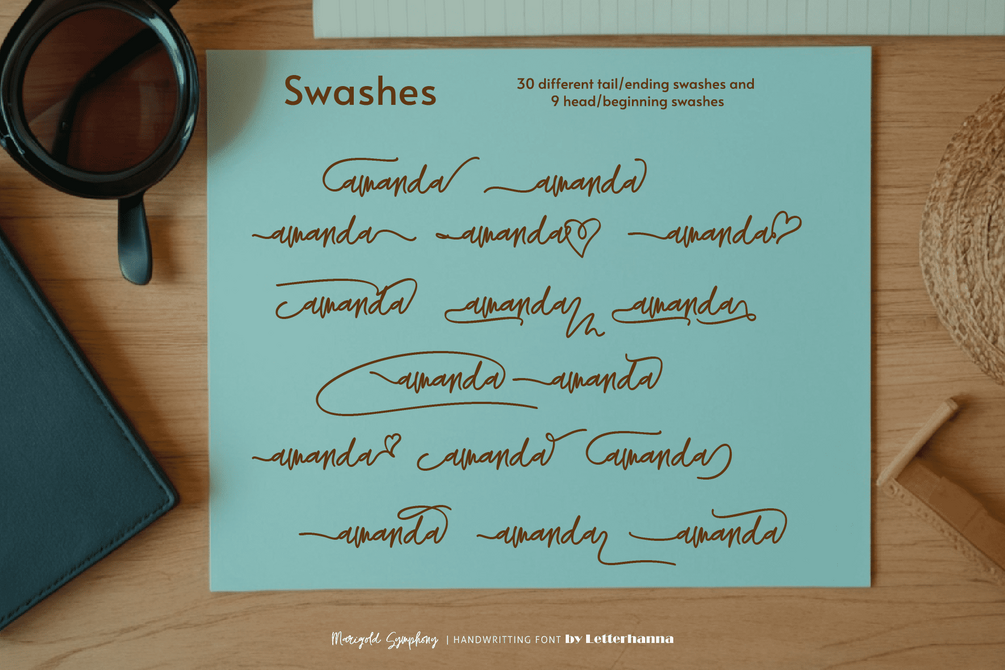 Swashes
30 different tail/ending swashes and
9 head/beginning swashes
amanda amanda
amanda amanda amanda
amanda amanda amanda
amanda amanda
amanda amanda amanda
amanda amanda amanda
Marigold Symphony | HANDWRITTING FONT by Letterhanna